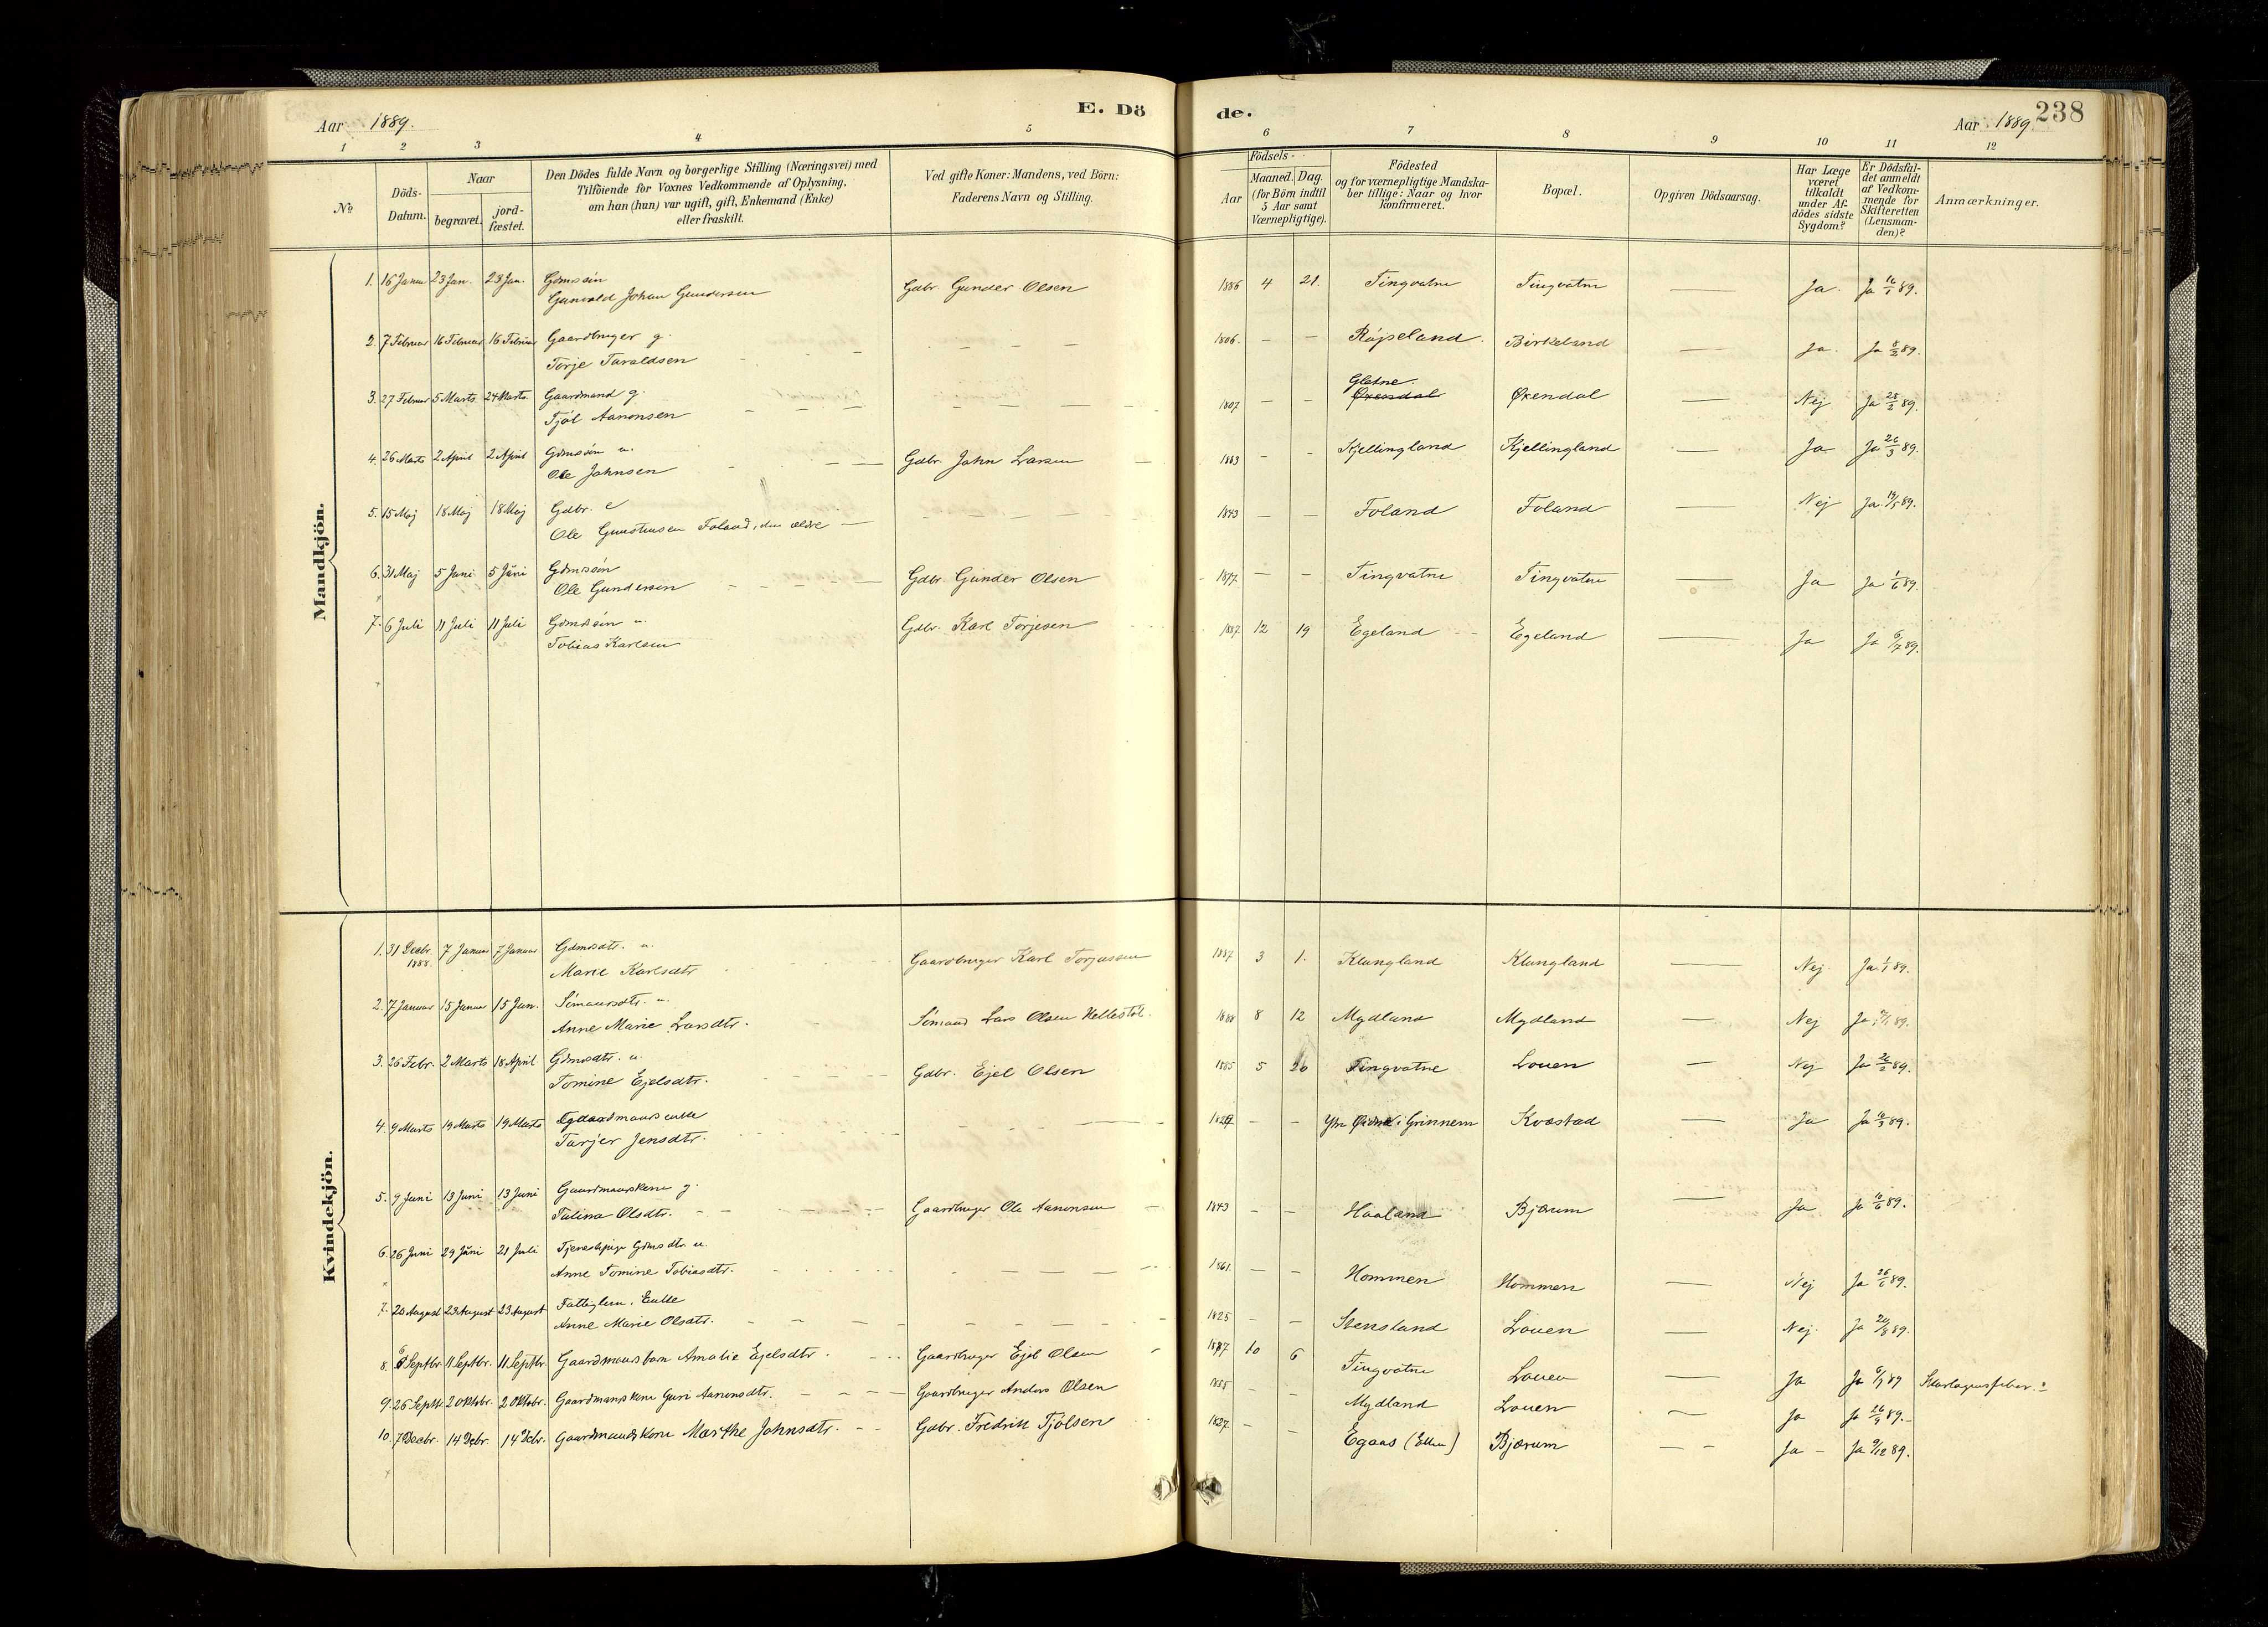 Aar 1889.
E. Dö
de.
Aar 1889.
238
1 2 3 4 5 6 7 8 9 10 11 12
№
Döds-Datum.
Naar
begravet.
jordfæstet.
Den Dödes fulde Navn og borgerlige Stilling (Næringsvei) med
Tilföiende for Voxnes Vedkommende af Oplysning,
om han (hun) var ugift, gift, Enkemand (Enke)
eller fraskilt.
Ved gifte Koner: Mandens, ved Börn:
Faderens Navn og Stilling.
Födsels-
Aar
Maaned. Dag.
(for Börn indtil
5 Aar samt
Værnepligtige).
Födested
og for værnepligtige Mandska-
ber tillige: Naar og hvor
konfirmeret.
Bopæl.
Opgiven Dödsaarsag.
Har Læge
været
tilkaldt
under Af-
dödes sidste
Sygdom?
Er Dödsfal-
det anmeldt
af Vedkom-
mende for
Skifteretten
(Lensman-
den)?
Anmærkninger.
Mandkjön.
1. 16 Januar 23 Jan. 23 Jan. Gdmssön
Gunvald Johan Gundersen Gdbr. Gunder Olsen 1886 4 21. Tingvatne Tingvatne — Ja. Ja 16/1 89.
2. 7 Februar 16 Februar 16 Februar Gaardbruger g.
Torje Taraldsen — — — 1806. — — Röjseland. Birkeland — Ja. Ja 8/2 89.
3. 27 Februar 5 Marts 24 Marts Gaardmand g.
Tjöl Aanonsen — — — 1807 — — Gletne. Øxendal Øxendal — Nej Ja 28/2 89.
4. 26 Marts 2 April 2 April Gdmssön u.
Ole Johnsen — — Gdbr. John Larsen — 1883 — — Kjellingland Kjellingland — Ja Ja 26/3 89.
5. 15 Maj 18 Maj 18 Maj Gdbr. e
Ole Foland, den ældre — — — 1843 — — Foland Foland — Nej Ja 89.
6. 31 Maj 5 Juni 5 Juni Gdmssön
Ole Gundersen — — Gdbr. Gunder Olsen 1877. — — Tingvatne Tingvatne — Ja Ja 1/6 89.
7. 6 Juli 11 Juli 11 Juli Gdmssön u.
Tobias Karlsen Gdbr. Karl Torjesen 1887. 12 19 Egeland Egeland — Ja Ja 6/7 89.
Kvindekjön.
1. 31 Decbr. 1888. 7 Januar 7 Januar Gdmsdtr. u.
Marie Karlsdtr Gaardbruger Karl Torjussen 1887 3 1. Klungland Klungland — Nej. Ja 1/1 89.
2. 7 Januar 15 Januar 15 Jan. Sömansdtr. u.
Anne Marie Larsdtr. Sömand Lars Olsen 1888 8 12 Mydland Mydland — Nej Ja 89.
3. 26 Febr. 2 Marts 18 April Gdmsdtr. u.
Tomine Ejelsdtr. Gdbr. Ejel Olsen 1885 5 26 Tingvatne Louen — Nej Ja 26/2 89.
4. 9 Marts 19 Marts 19 Marts
Tarjer Jensdtr. — — — i Grinnem Kvæstad — Ja Ja 89.
5. 9 Juni 13 Juni 13 Juni Gaardmanskone g.
Talina Olsdtr. — Gaardbruger Ole Aanonsen — 1843 — — Haaland Bjærum — Ja Ja 10/6 89.
6. 26 Juni 29 Juni 21 Juli Tjenestepige Gdmsdtr. u.
Anne Tomine Tobiasdtr. — — — 1861. — — Hommen Hommen — Nej Ja 26/6 89.
7. 20 August 23 August 23 August Fattiglem. Enke
Anne Marie Olsdtr. — — — 1825 — — Stensland Louen — Nej. Ja 20/8 89.
8. 6 Septbr. 11 Septbr. 11 Septbr. Gaardmansbarn Amalie Ejelsdtr. — Gaardbruger Ejel Olsen 1887 10 6 Tingvatne Louen Ja Ja 6/9 89 Skarlagensfeber.
9. 26 Septbr. 2 Oktobr. 2 Oktobr. Gaardmanskone Guri Aanonsdtr. — Gaardbruger Anders Olsen 1835 — — Mydland Louen — Ja Ja 26/9 89.
10. 7 Decbr. 14 Dcbr. 14 Dcbr. Gaardmandskone Marthe Johnsdtr. — Gdbr. Fredrik Tjölsen 1827. — — Egaas (Etten) Bjærum — — Ja — Ja 9/12 89.